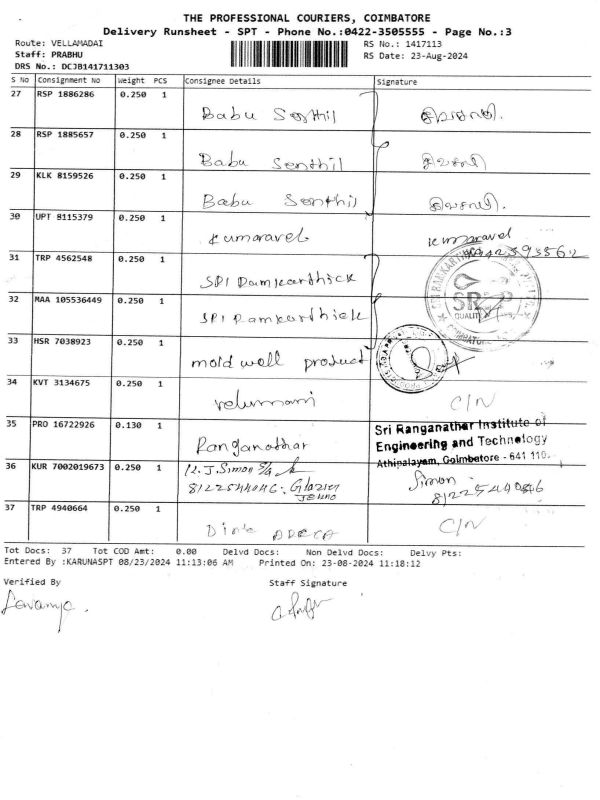 THE PROFESSIONAL COURIERS, COIMBATORE
Delivery Runsheet - SPT - Phone No.:0422-3505555 - Page No.:3
Route: VELLAMADAI
RS No.: 1417113
Staff: PRABHU
RS Date: 23-Aug-2024
DRS No.: DCJB141711303
S No Consignment No Weight PCS Consignee Details Signature
27 RSP 1886286 0.250 1
Babu Senthil
28 RSP 1885657 0.250 1
Babu Senthil
29 KLK 8159526 0.250 1
Babu Senthil
30 UPT 8115379 0.250 1
Kumaravel Kumaravel
31 TRP 4562548 0.250 1
SRI Ramkarthick
32 MAA 105536449 0.250 1
SRI Ramkarthick
33 HSR 7038923 0.250 1
mold well product
34 KVT 3134675 0.250 1
velumani C/N
35 PRO 16722926 0.130 1
Ranganathar
Sri Ranganathar Institute of
Engineering and Technology
Athipalayam, Coimbatore - 641 110.
36 KUR 7002019673 0.250 1
J. Simon Simon
37 TRP 4940664 0.250 1
C/N
Tot Docs: 37 Tot COD Amt: 0.00 Delvd Docs: Non Delvd Docs: Delvy Pts:
Entered By :KARUNASPT 08/23/2024 11:13:06 AM Printed On: 23-08-2024 11:18:12
Verified By Staff Signature
Lavanya.